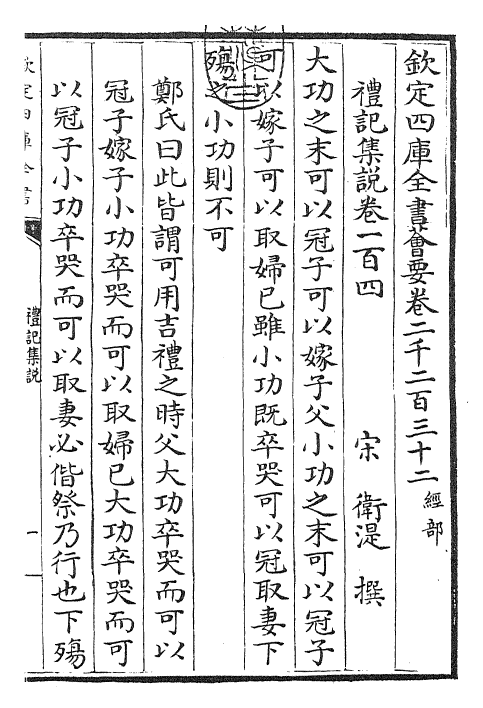 欽定四庫全書薈要卷二千二百三十二 經部
禮記集說卷一百四
宋 衛湜 撰
大功之末可以冠子可以嫁子父小功之末可以冠子
可以嫁子可以取婦已雖小功既卒哭可以冠取妻下
殤之小功則不可
鄭氏曰此皆謂可用吉禮之時父大功卒哭而可以
冠子嫁子小功卒哭而可以取婦已大功卒哭而可
以冠子小功卒哭而可以取妻必偕祭乃行也下殤
欽定四庫全書
禮記集說
一